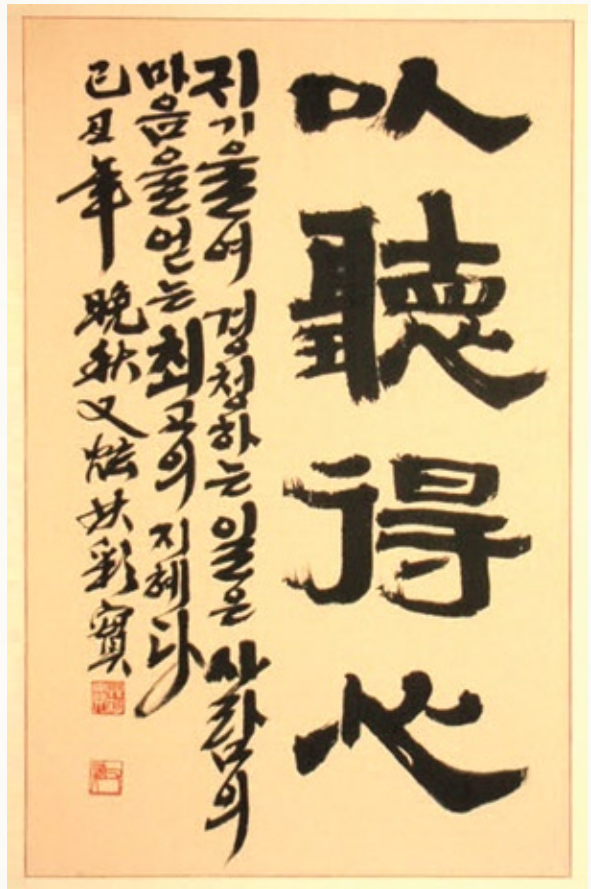 以聽得心
귀기울여 경청하는 일은 사람의
마음을 얻는 최고의 지혜다
己丑年 晩秋 又炫 林彩寶